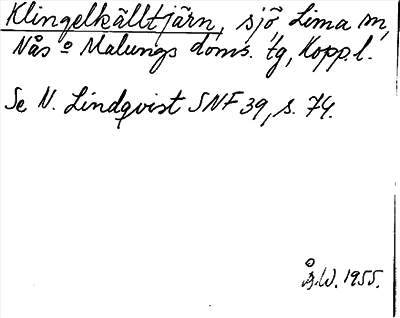 Klingelkälltjärn, sjö, Lima sn,
Nås o Malungs doms. tg, Kopp. l.
Se N. Lindqvist SNF 39, s. 74.
Å.W. 1955.